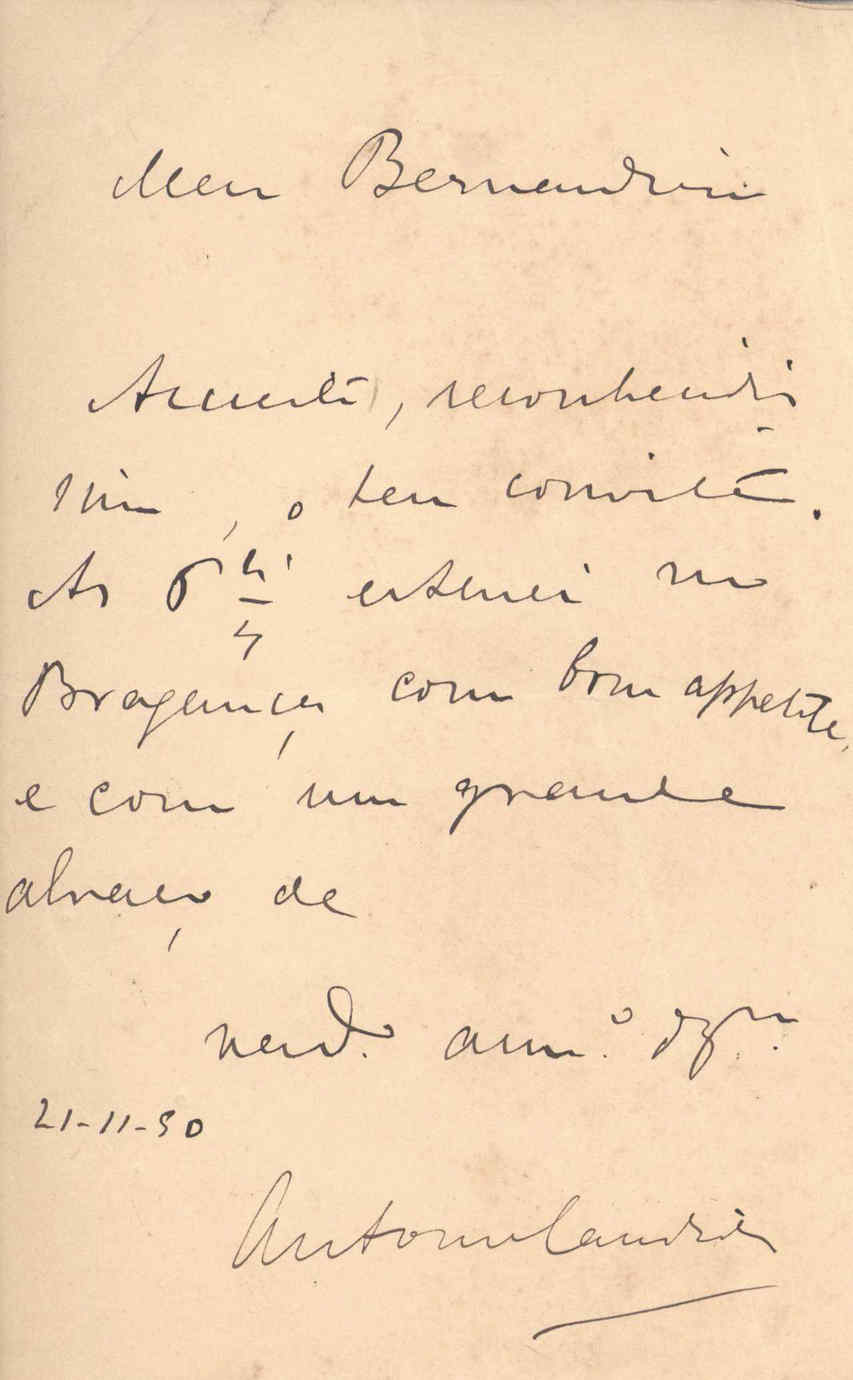 Meu Bernardino
Acceito, reconhecidis
simo, o teu convite.
As 6 estarei no
Bragança com bom appetite,
e com um grande
abraço de
verd.º am.º
21-11-90
Antonio Candido